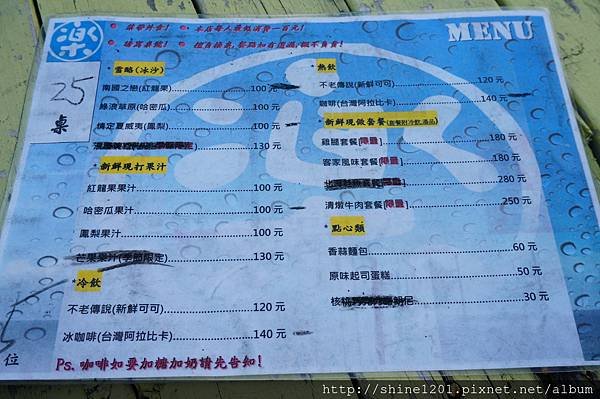 樂
* 禁帶外食! * 本店每人最低消費一百元!
* 請寫桌號! * 擅自接桌,餐點如有遺漏,概不負責!
MENU
25
桌
* 雪酪(冰沙)
南國之戀(紅龍果) 100 元
綠浪草原(哈密瓜) 100 元
情定夏威夷(鳳梨) 100 元
130 元
* 新鮮現打果汁
紅龍果果汁 100 元
哈密瓜果汁 100 元
鳳梨果汁 100 元
芒果果汁(季節限定) 130 元
* 冷飲
不老傳說(新鮮可可) 120 元
冰咖啡(台灣阿拉比卡) 140 元
位
Ps. 咖啡如要加糖加奶請先告知!
* 熱飲
不老傳說(新鮮可可) 120 元
咖啡(台灣阿拉比卡) 140 元
* 新鮮現做套餐(套餐附冷飲.甜品)
雞腿套餐[限量] 180 元
客家風味套餐[限量] 180 元
套餐[限量] 280 元
清燉牛肉套餐[限量] 250 元
* 點心類
香蒜麵包 60 元
原味起司蛋糕 50 元
核桃 30 元
http://shine1201.pixnet.net/album